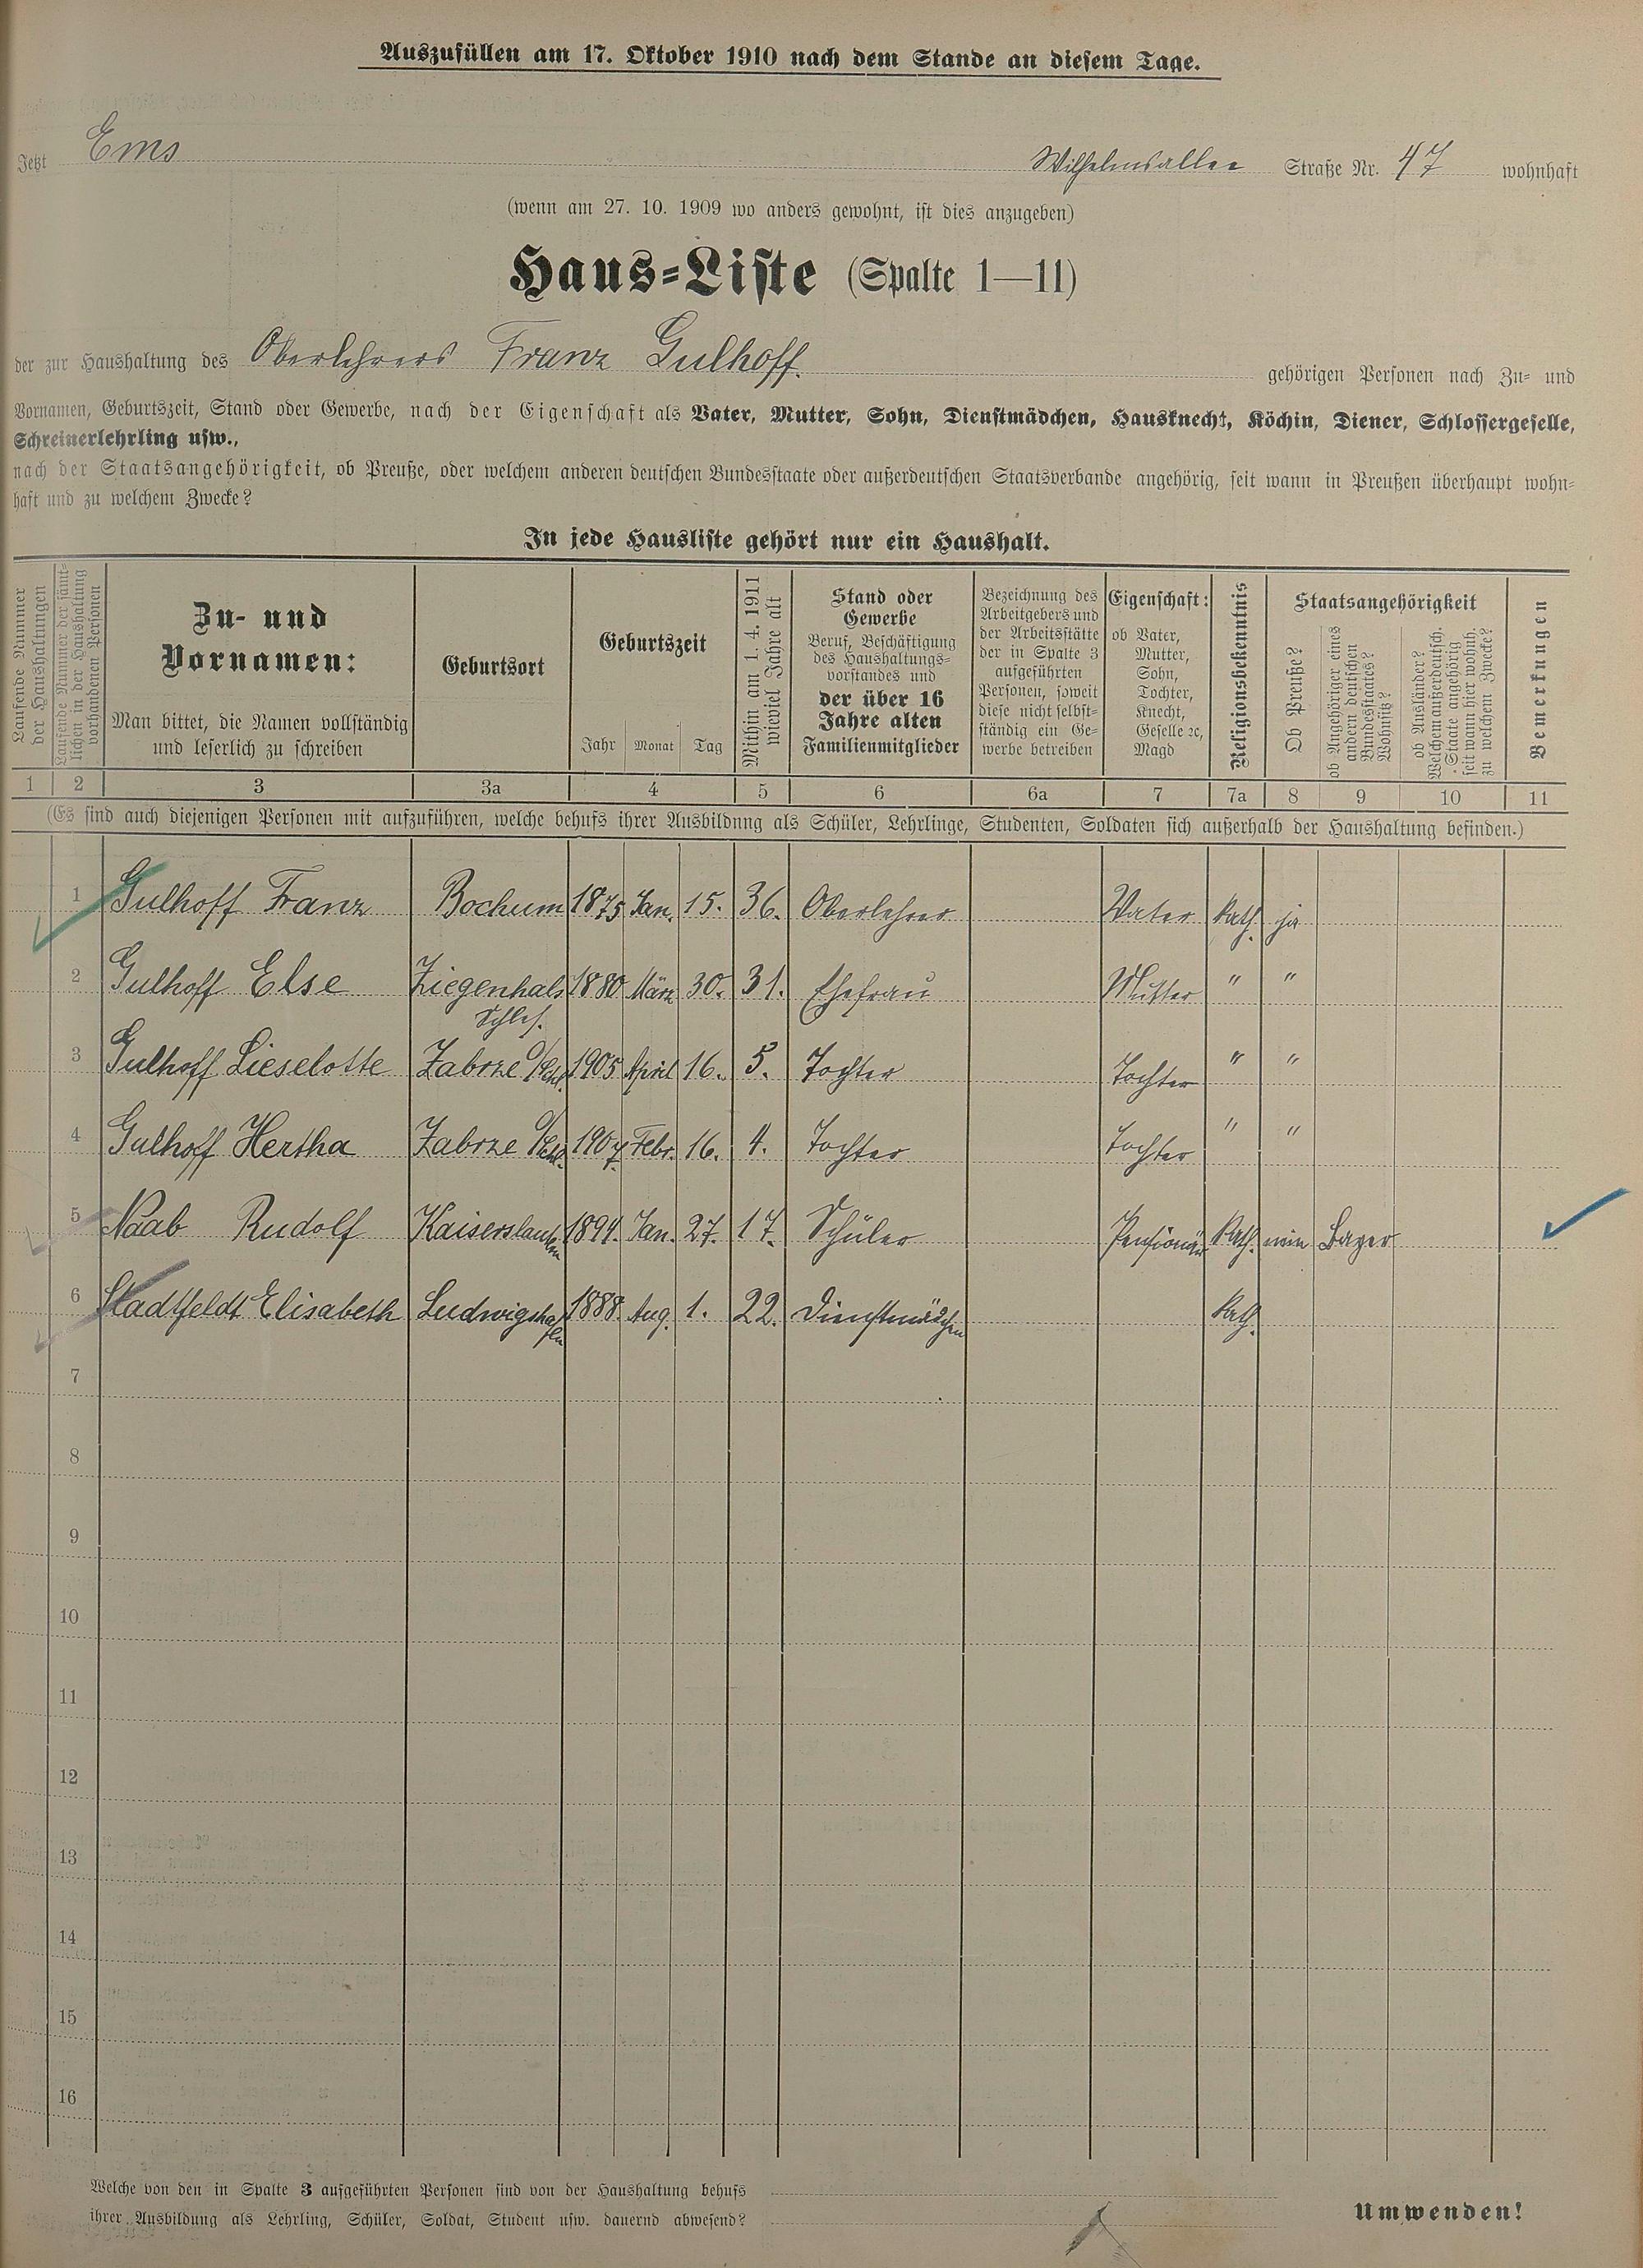 Auszufüllen am 17. Oktober 1910 nach dem Stande an diesem Tage.
Jetzt Ems Wilhelmsallee Straße Nr. 47 wohnhaft
(wenn am 27. 10. 1909 wo anders gewohnt, ist dies anzugeben)
Haus-Liste (Spalte 1—11)
der zur Haushaltung des Oberlehrers Franz Gulhoff. gehörigen Personen nach Zu- und
Vornamen, Geburtszeit, Stand oder Gewerbe, nach der Eigenschaft als Vater, Mutter, Sohn, Dienstmädchen, Hausknecht, Köchin, Diener, Schlossergeselle,
Schreinerlehrling usw.,
nach der Staatsangehörigkeit, ob Preuße, oder welchem anderen deutschen Bundesstaate oder außerdeutschen Staatsverbande angehörig, seit wann in Preußen überhaupt wohn-
haft und zu welchem Zwecke?
In jede Hausliste gehört nur ein Haushalt.
Laufende Nummer
der Haushaltungen
Laufende Nummer der sämt-
lichen in der Haushaltung
vorhandenen Personen
Zu- und
Vornamen:
Man bittet, die Namen vollständig
und leserlich zu schreiben
Geburtsort
Geburtszeit
Jahr Monat Tag
Mithin am 1. 4. 1911
wieviel Jahre alt
Stand oder
Gewerbe
Beruf, Beschäftigung
des Haushaltungs-
vorstandes und
der über 16
Jahre alten
Familienmitglieder
Bezeichnung des
Arbeitgebers und
der Arbeitsstätte
der in Spalte 3
aufgeführten
Personen, soweit
diese nicht selbst-
ständig ein Ge-
werbe betreiben
Eigenschaft:
ob Vater,
Mutter,
Sohn,
Tochter,
Knecht,
Geselle ꝛc,
Magd
Religionsbekenntnis
Staatsangehörigkeit
Ob Preuße?
ob Angehöriger eines
andern deutschen
Bundesstaates?
Wohnsitz?
ob Ausländer?
Welchem außerdeutsch.
Staate angehörig
seit wann hier wohnh.
zu welchen Zwecke?
Bemerkungen
1 2 3 3a 4 5 6 6a 7 7a 8 9 10 11
(Es sind auch diejenigen Personen mit aufzuführen, welche behufs ihrer Ausbildung als Schüler, Lehrlinge, Studenten, Soldaten sich außerhalb der Haushaltung befinden.)
1 Gulhoff Franz Bochum 1875 Jan. 15. 36. Oberlehrer Vater kath. ja
2 Gulhoff Else Ziegenhals Schles. 1880 März 30. 31. Ehefrau Mutter " "
3 Gulhoff Lieselotte Zabrze O/Schl. 1905 April 16. 5. Tochter Tochter " "
4 Gulhoff Hertha Zabrze O/Schl. 1907 Febr. 16. 4. Tochter Tochter " "
5 Naab Rudolf Kaiserslautern 1894. Jan. 27. 17. Schüler Pensionär kath. nein Bayer
6 Stadtfeldt Elisabeth Ludwigshafen 1888. Aug. 1. 22. Dienstmädchen kath.
7
8
9
10
11
12
13
14
15
16
Welche von den in Spalte 3 aufgeführten Personen sind von der Haushaltung behufs
ihrer Ausbildung als Lehrling, Schüler, Soldat, Student usw. dauernd abwesend?
Umwenden!